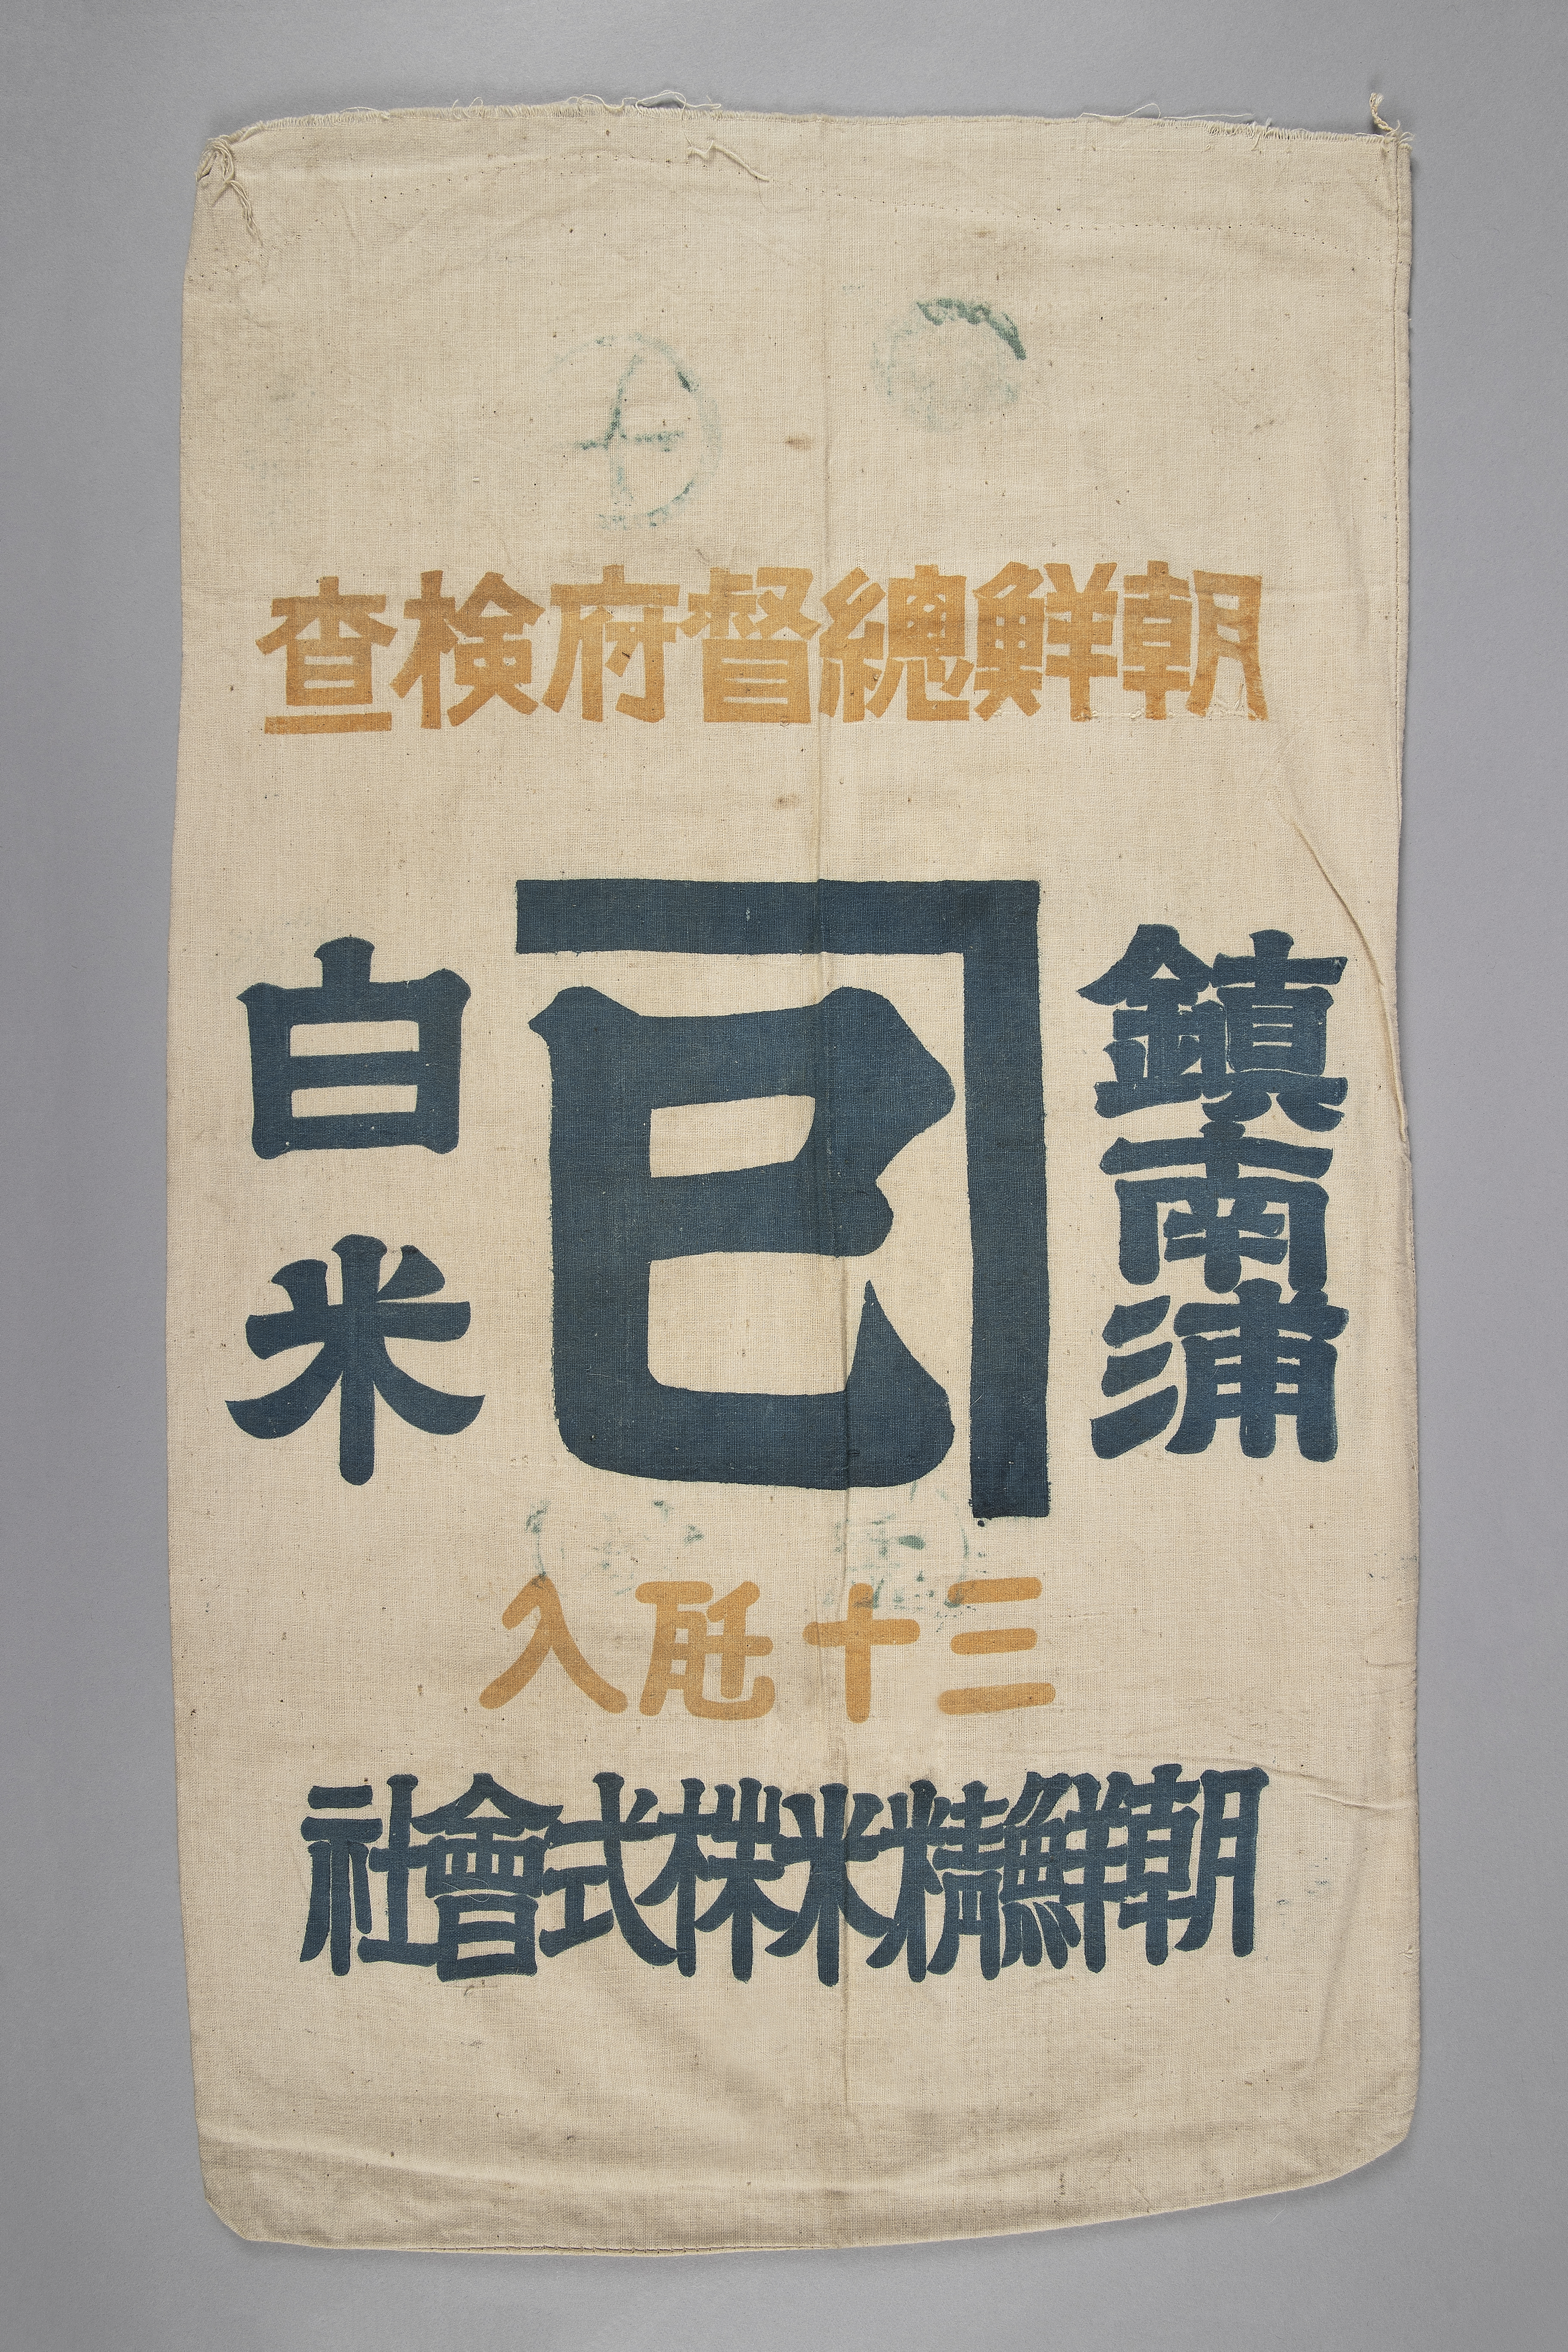 朝鮮總督府検査
鎮南浦
㔾
白米
三十瓩入
朝鮮精米株式會社